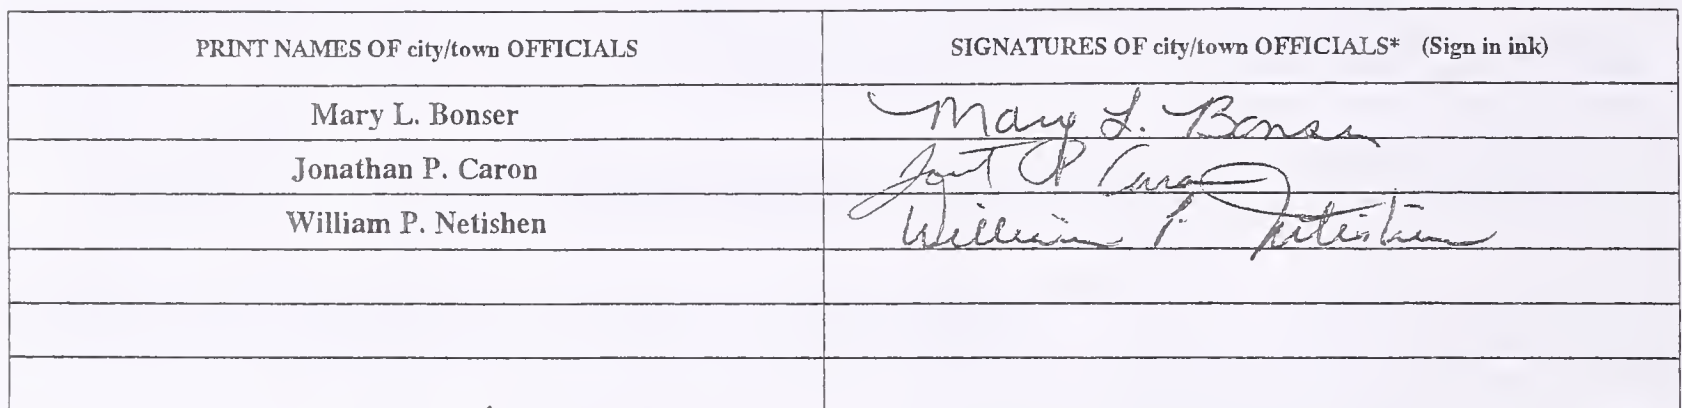 PRINT NAMES OF city/town OFFICIALS SIGNATURES OF city/town OFFICIALS* (Sign in ink)
Mary L. Bonser Mary L. Bonser
Jonathan P. Caron Jont P Caron
William P. Netishen William P. Netishen